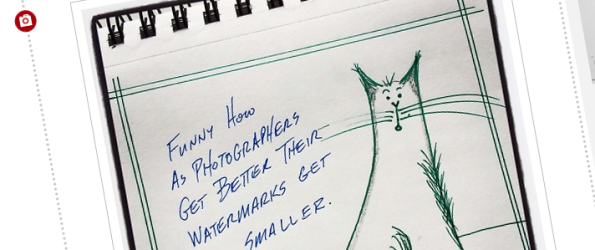 Funny How
As Photographers
Get Better Their
Watermarks Get
Smaller.